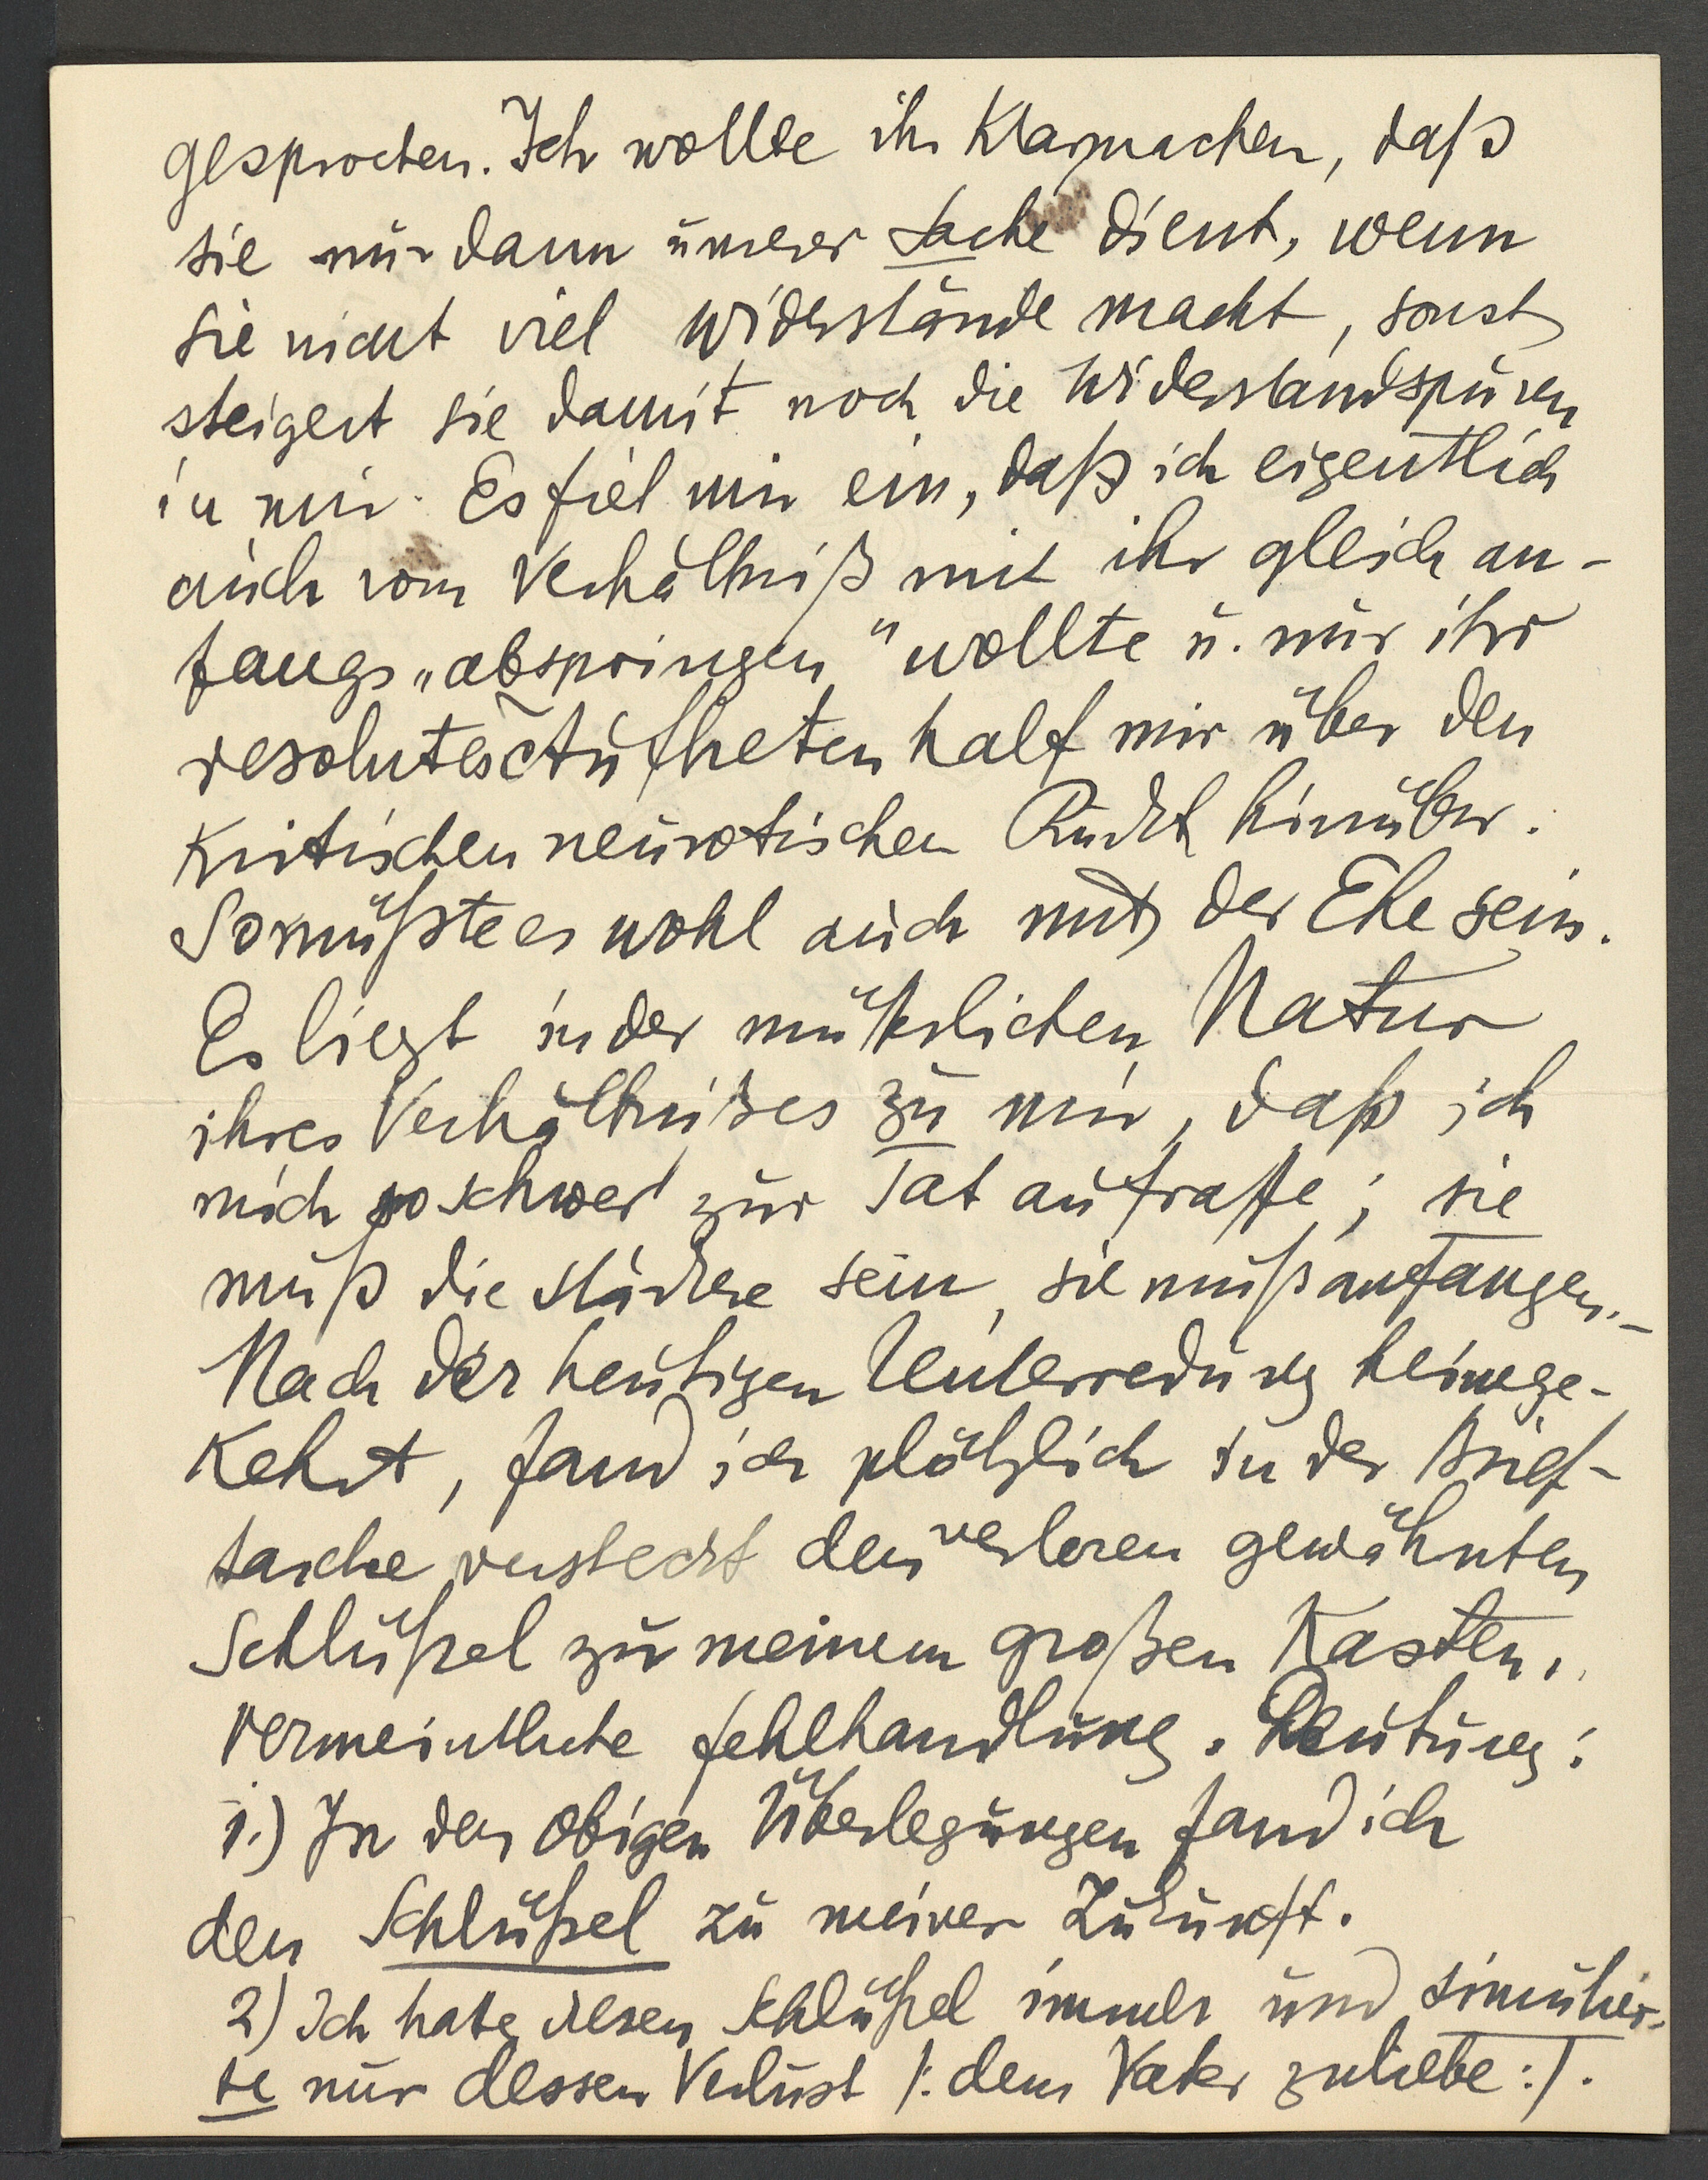 gesprochen. Ich wollte ihr klarmachen, daß
sie nur dann unserer Sache dient, wenn
sie nicht viel Widerstände macht, sonst
steigert sie damit noch die Widerstandspuren
in mir. Es fiel mir ein, daß ich eigentlich
auch vom Verhältniß mit ihr gleich an-
fangs „abspringen" wollte u. nur ihr
resolutes Auftreten half mir über den
kritischen neurotischen hinüber.
So müßte es wohl auch mit der Ehe sein.
Es liegt in der mütterlichen Natur
ihres Verhältnißes zu mir, daß ich
mich so schwer zur Tat aufraffe; sie
muß die Stärkere sein, sie muß anfangen.–
Nach der heutigen Unterredung heimge-
kehrt, fand ich plötzlich in der Brief-
tasche versteckt den verloren gewähnten
Schlüßel zu meinem großen Kasten.
Vermeintliche Fehlhandlung. Deutung:
1.) In den obigen Überlegungen fand ich
den Schlüßel zu meiner Zukunft.
2) Ich hatte diesen Schlüßel immer und simulier-
te nur dessen Verlust /: dem Vater zuliebe :/.